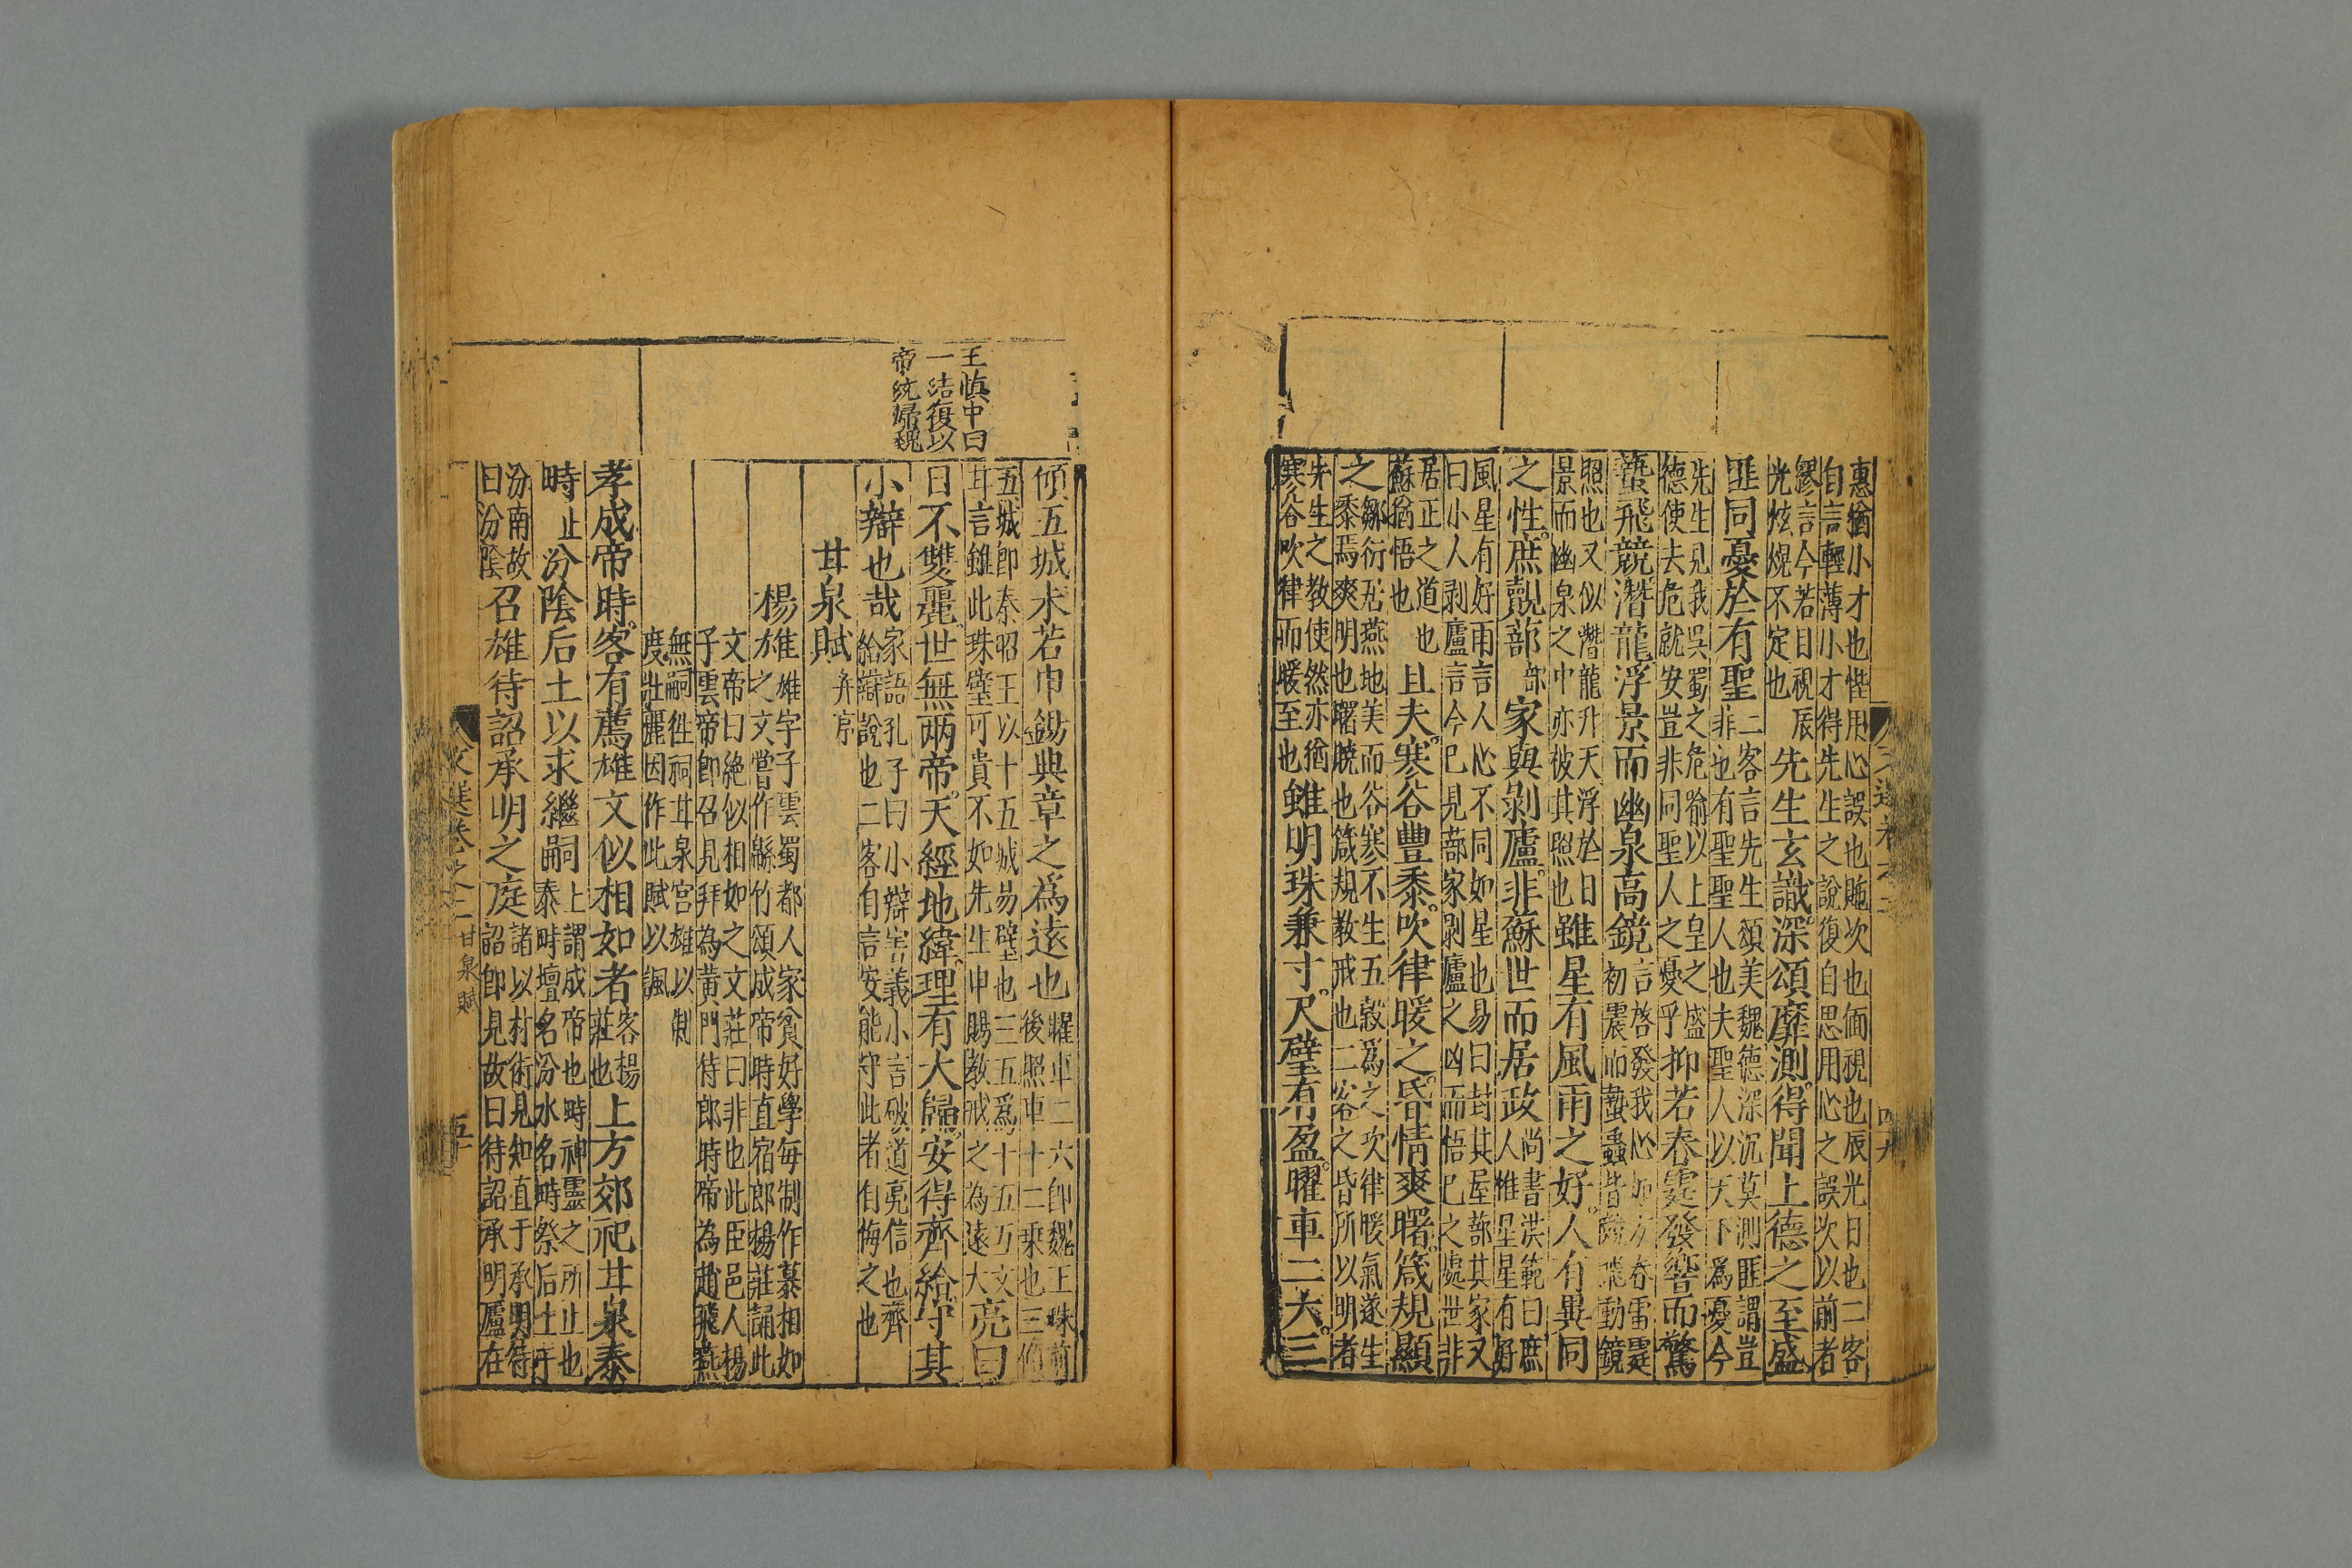 惠猶小才也悂用心誤也貤次也偭視也辰光日也二客
自言輕薄小才得先生之說復自思用心之誤次以前者
繆言今若目視辰
光炫熀不定也
先生玄識深頌靡測得聞上德之至盛
匪同憂於有聖
二客言先生頌美魏德深沉莫測匪謂豈
非也有聖聖人也夫聖人以天下爲憂今
先生見我吳蜀之危喻以上皇之盛
德使去危就安豈非同聖人之憂乎
抑若春霆發響而驚
蟄飛競潛龍浮景而幽泉高鏡
言啓發我心如方春雷霆
初震而蟄蟲皆競飛動鏡
照也又似潛龍升天浮於日
景而幽泉之中亦被其照也
雖星有風雨之好人有異同
之性庶覿蔀部家與剝廬非蘇世而居政
尚書洪範曰庶
人惟星星有好
風星有好雨言人心不同如星也易曰封其屋蔀其家又
曰小人剥廬言今已見蔀家剥廬之凶而悟已之處世非
居正之道也
蘇猶悟也
且夫寒谷豐黍吹律暖之昏情爽曙箴規顯
之
鄒衍居燕地美而谷寒不生五穀爲之吹律暖氣遂生
黍焉爽明也曙曉也箴規教戒也二客之昏所以明者
先生之教使然亦猶
寒谷吹律而暖至也
雖明珠兼寸尺璧有盈曜車二六三
文選卷之三
四九
王慎中曰
一結復以
帝統歸魏
傾五城未若申錫典章之爲遠也
耀車二六卽魏王珠前
後照車十二乘也三傾
五城卽秦昭王以十五城易璧也三五爲十五乃文
耳言雖此珠璧可貴不如先生申賜教戒之為遠大
亮曰
日不雙麗世無兩帝天經地緯理有大歸安得齊給守其
小辯也哉
家語孔子曰小辯害義小言破道亮信也齊
給辯說也二客自言安能守此者自悔之也
甘泉賦并序
楊雄
雄字子雲蜀都人家貧好學每制作慕相如
之文嘗作緜竹頌成帝時直宿郎楊莊誦此
文帝曰絶似相如之文莊曰非也此臣邑人楊
子雲帝卽召見拜為黄門侍郎時帝為趙飛燕
無嗣徃祠甘泉宮雄以制
度壯麗因作此賦以諷
孝成帝時客有薦雄文似相如者
客楊
莊也
上方郊祀甘泉泰
畤止汾陰后土以求繼嗣
上謂成帝也畤神靈之所止也
泰畤壇名汾水名畤祭后土于
汾南故
曰汾陰
召雄待詔承明之庭
諸以材術見知直于承明待
詔卽見故曰待詔承明廬在
文選卷之三
甘泉賦
五十